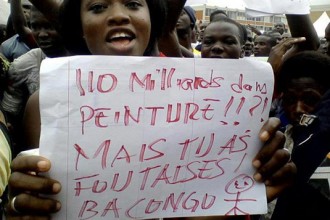 110 Milliards dans
PEINTURE!!?!
MAIS TU AS
FOUTAISES!
BACONGO